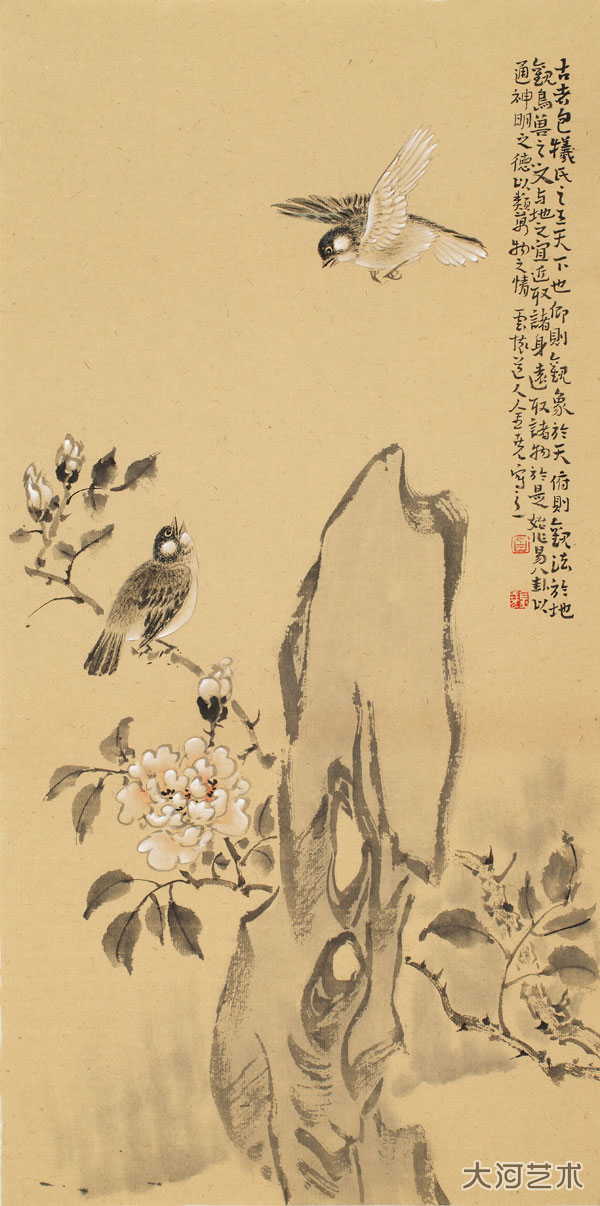 古者包犧氏之王天下也仰則觀象於天俯則觀法於地
觀鳥兽之文与地之宜近取諸身遠取諸物於是始作易八卦以
通神明之德以類萬物之情 道人 寫之
大河艺术